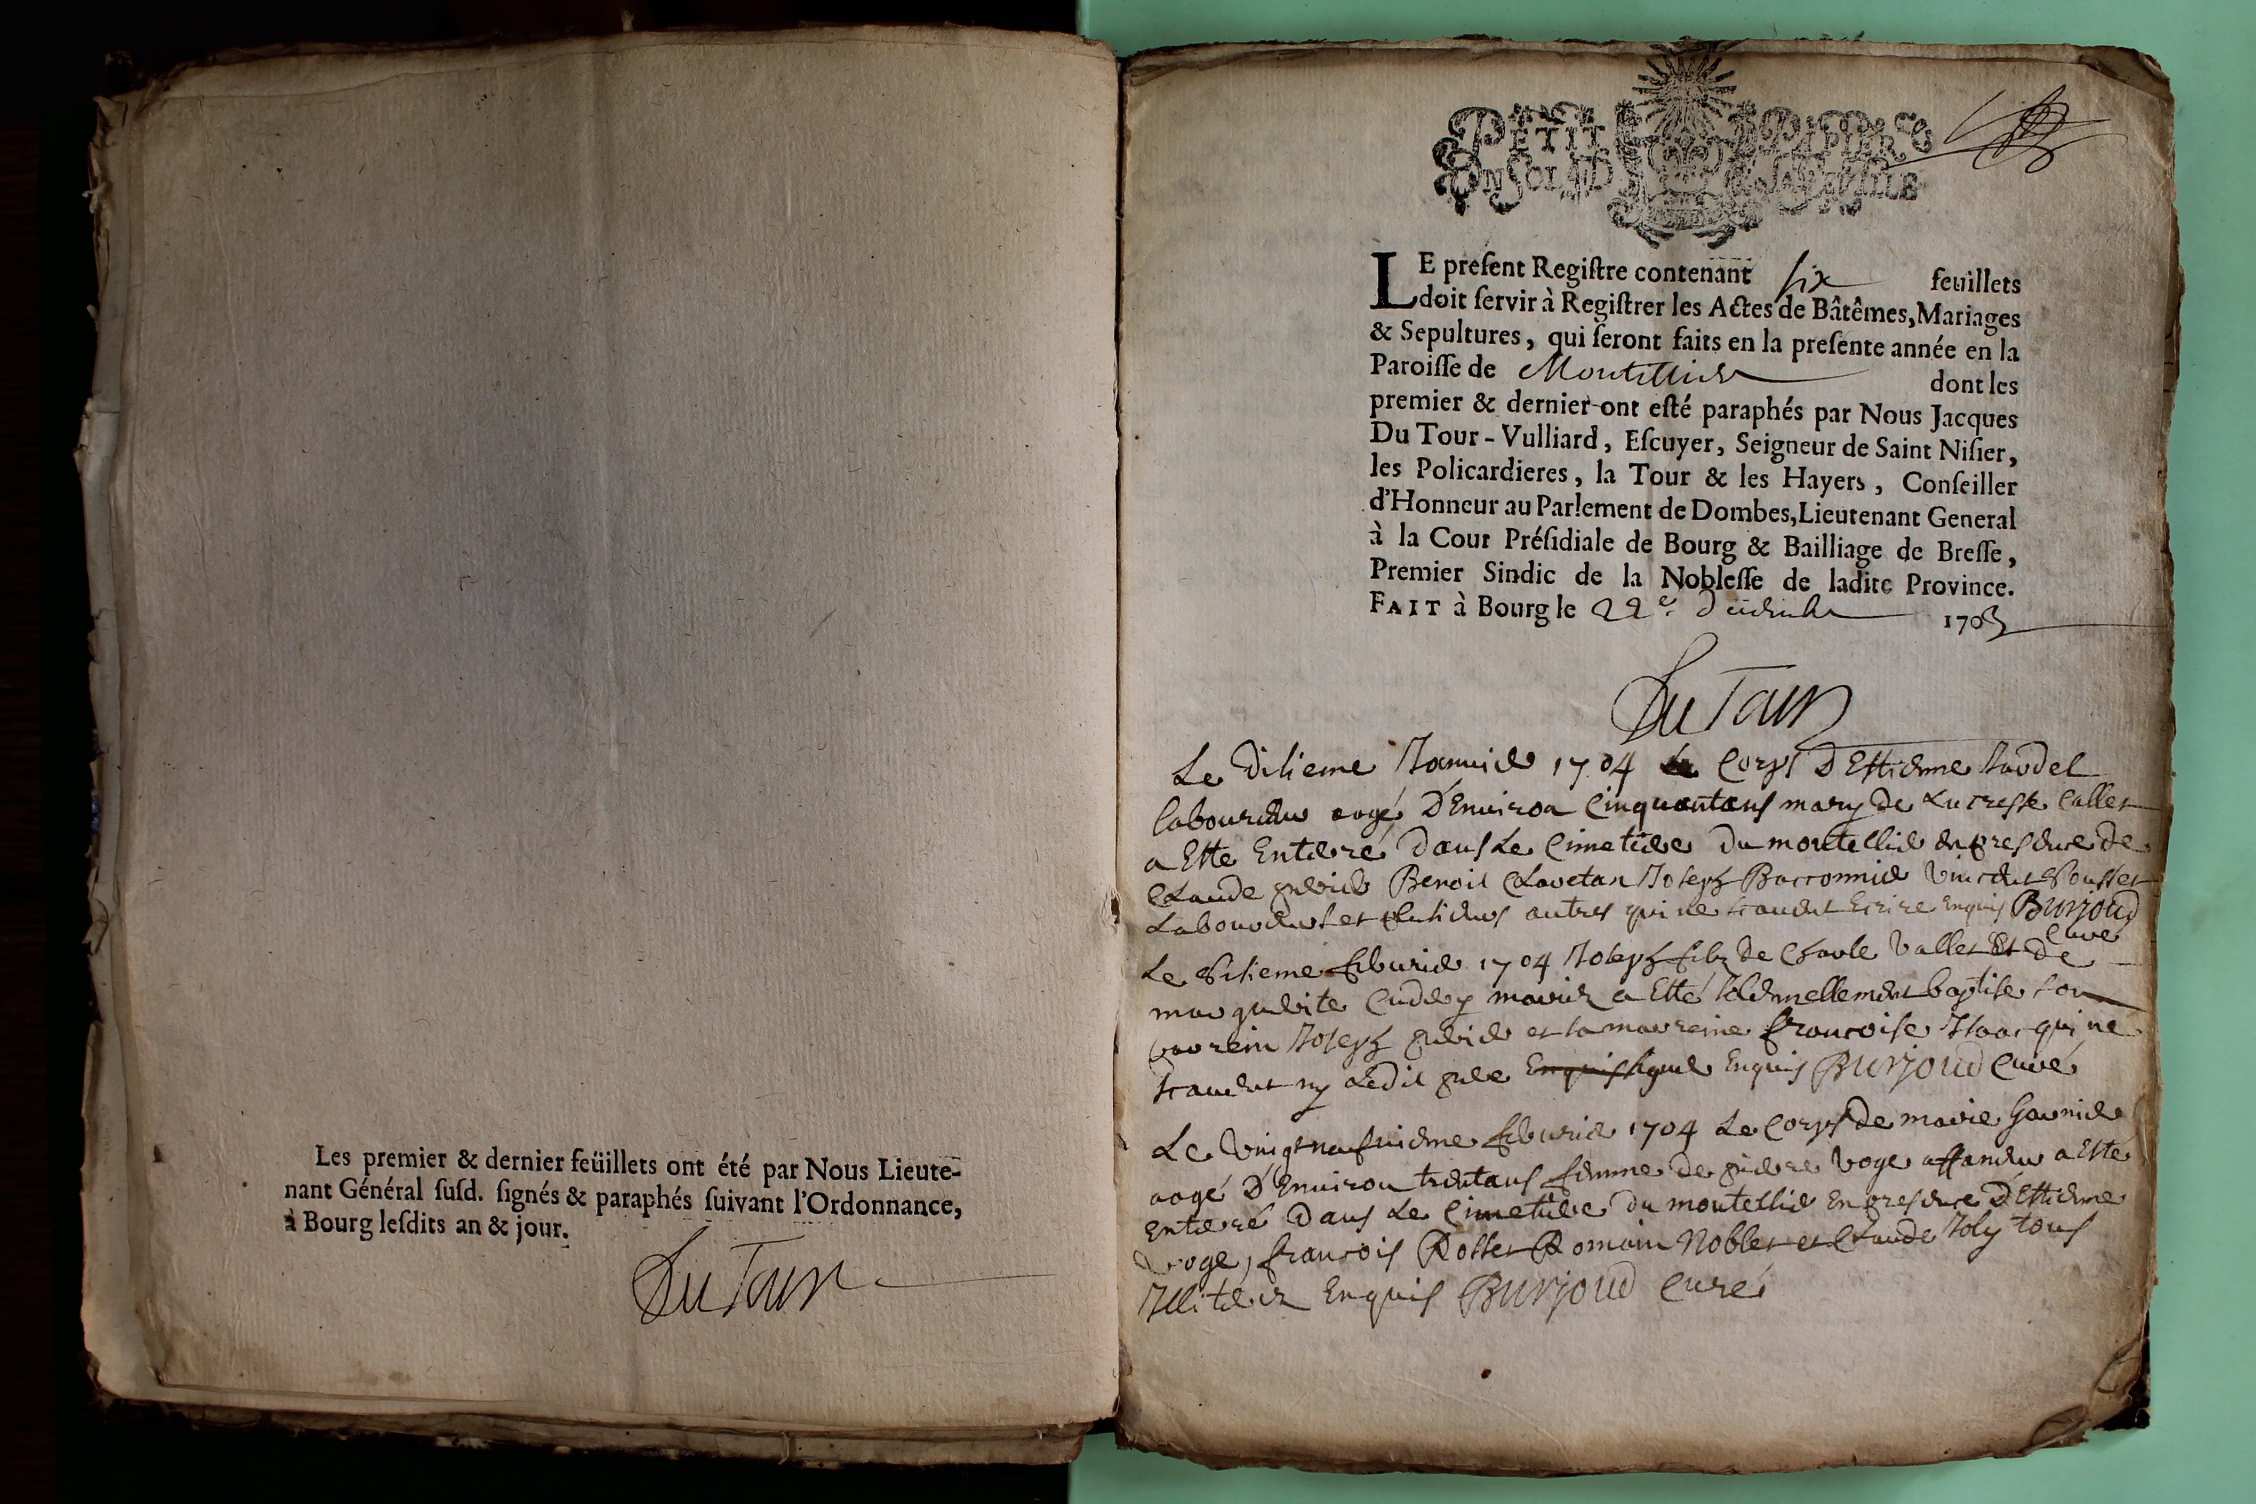 Les premier & dernier feüillets ont été par Nous Lieute-
nant Général suſd. ſignés & paraphés ſuivant l'Ordonnance,
à Bourg leſdits an & jour.
Du Tour
PETIT PAPIER
LE preſent Regiſtre contenant six feuillets
doit ſervir à Regiſtrer les Actes de Bâtêmes, Mariages
& Sepultures, qui ſeront faits en la preſente année en la
Paroiſſe de Montellier dont les
premier & dernier ont eſté paraphés par Nous Jacques
Du Tour-Vulliard, Eſcuyer, Seigneur de Saint Niſier,
les Policardieres, la Tour & les Hayers, Conſeiller
d'Honneur au Parlement de Dombes, Lieutenant General
à la Cour Préſidiale de Bourg & Bailliage de Breſſe,
Premier Sindic de la Nobleſſe de ladite Province.
FAIT à Bourg le 22e. Decembre 1703
Du Tour
Le Disieme Januier 1704 le Corps D'Estienne
laboureur aagé D'Enuiron Cinquantans mary de Lucresse Callet
a Esté Enterré Dans Le Cimetiere du montellier en presence de
Claude Benoit Clavetan Joseph Baronnier Vincent
Laboureurs et plusieurs autres qui ne scauent Ecrire Enquis Burjoud
Curé
Le feburier 1704 Joseph filz de Charle Vallet Et de
marguerite mariez a Esté solennellement baptise son
parrein Joseph et la marreine francoise Isaac qui ne
scauent ny Ledit pere Enquis Burjoud Curé
Le Vingt neufuieme feburier 1704 Le Corps de marie Garnier
aagé D'Enuiron trentans femme de pierre Voge affaneur a Esté
Enterré Dans Le Cimetiere du montellier En presence D'Estienne
Voge, francois Rosset Romain Noblet et Claude Joly tous
Illiterez Enquis Burjoud Curé